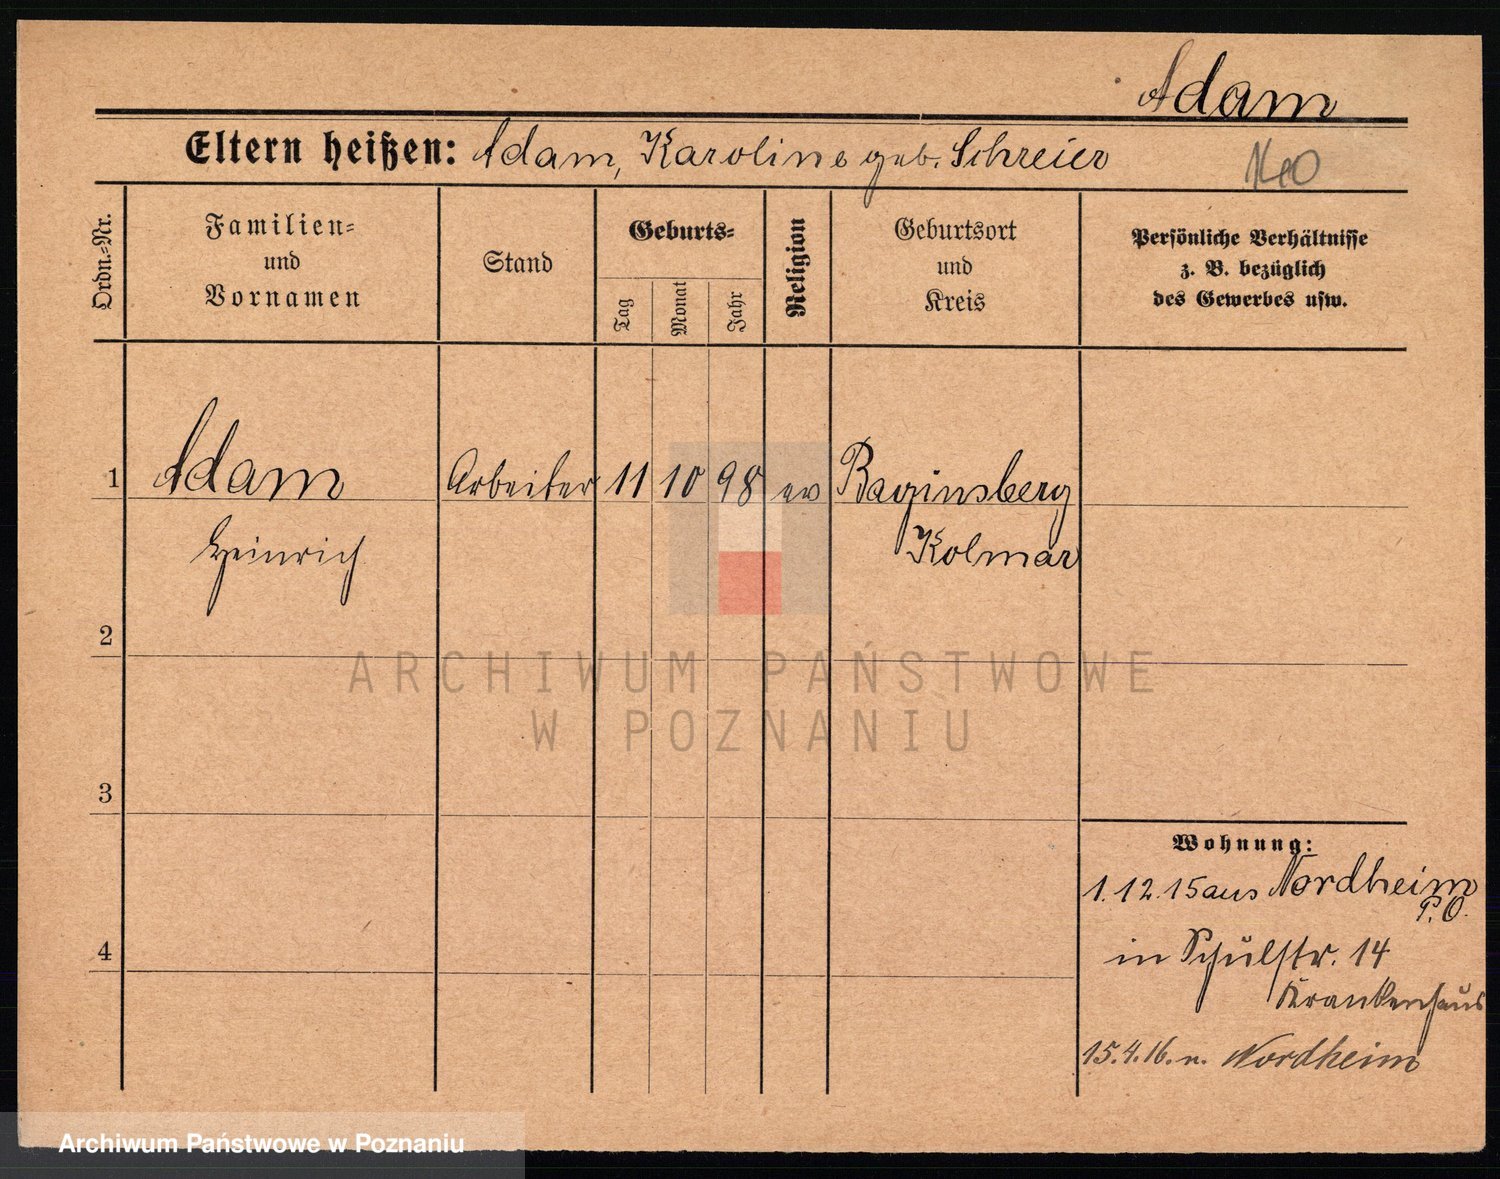 Adam
Eltern heißen: Adam, Karoline geb. Schreier
Ordn.-Nr.
Familien- und Vornamen
Stand
Geburts-
Tag
Monat
Jahr
Religion
Geburtsort und Kreis
Persönliche Verhältnisse
z. B. bezüglich
des Gewerbes usw.
1 Adam Arbeiter 11 10 98 ev Raginsberg
Heinrich Kolmar
2
ARCHIWUM PAŃSTWOWE
W POZNANIU
3
Wohnung:
1.12.15 aus Nordheim
P.O.
in Schulstr. 14
Krankenhaus
4
15.4.16. n. Nordheim
Archiwum Państwowe w Poznaniu